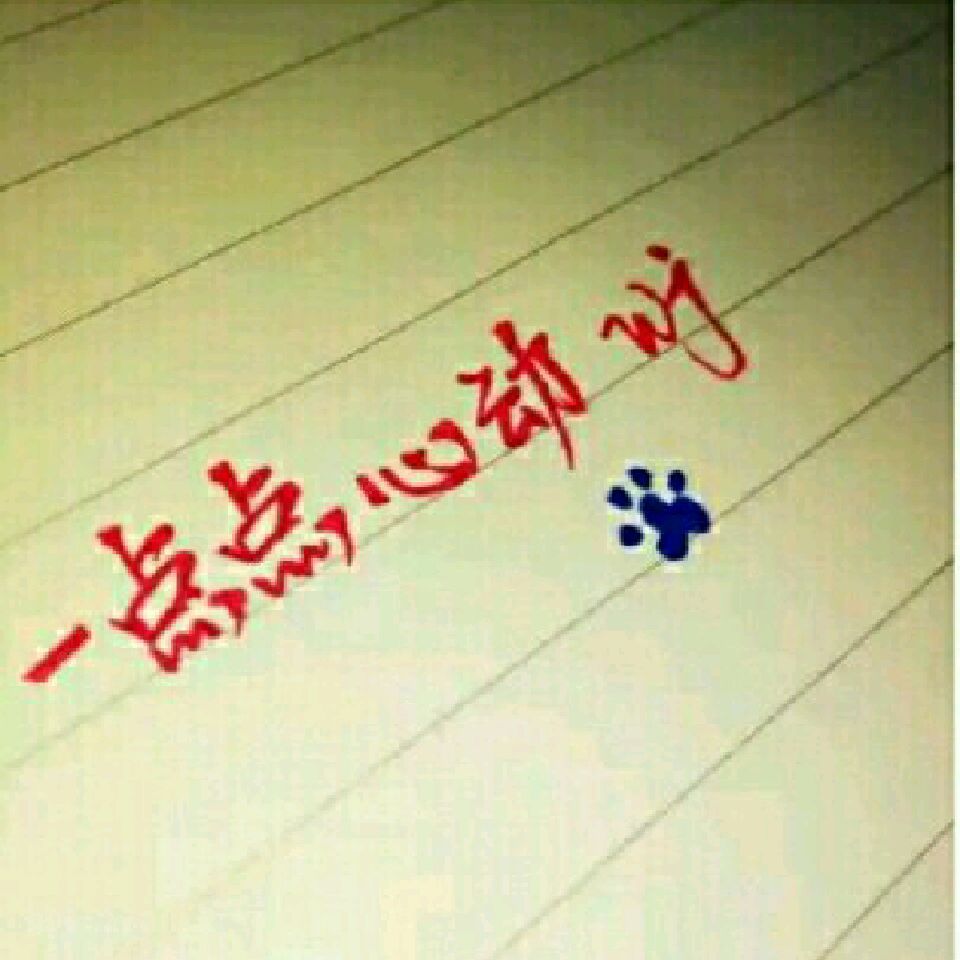 一点点心动 wj